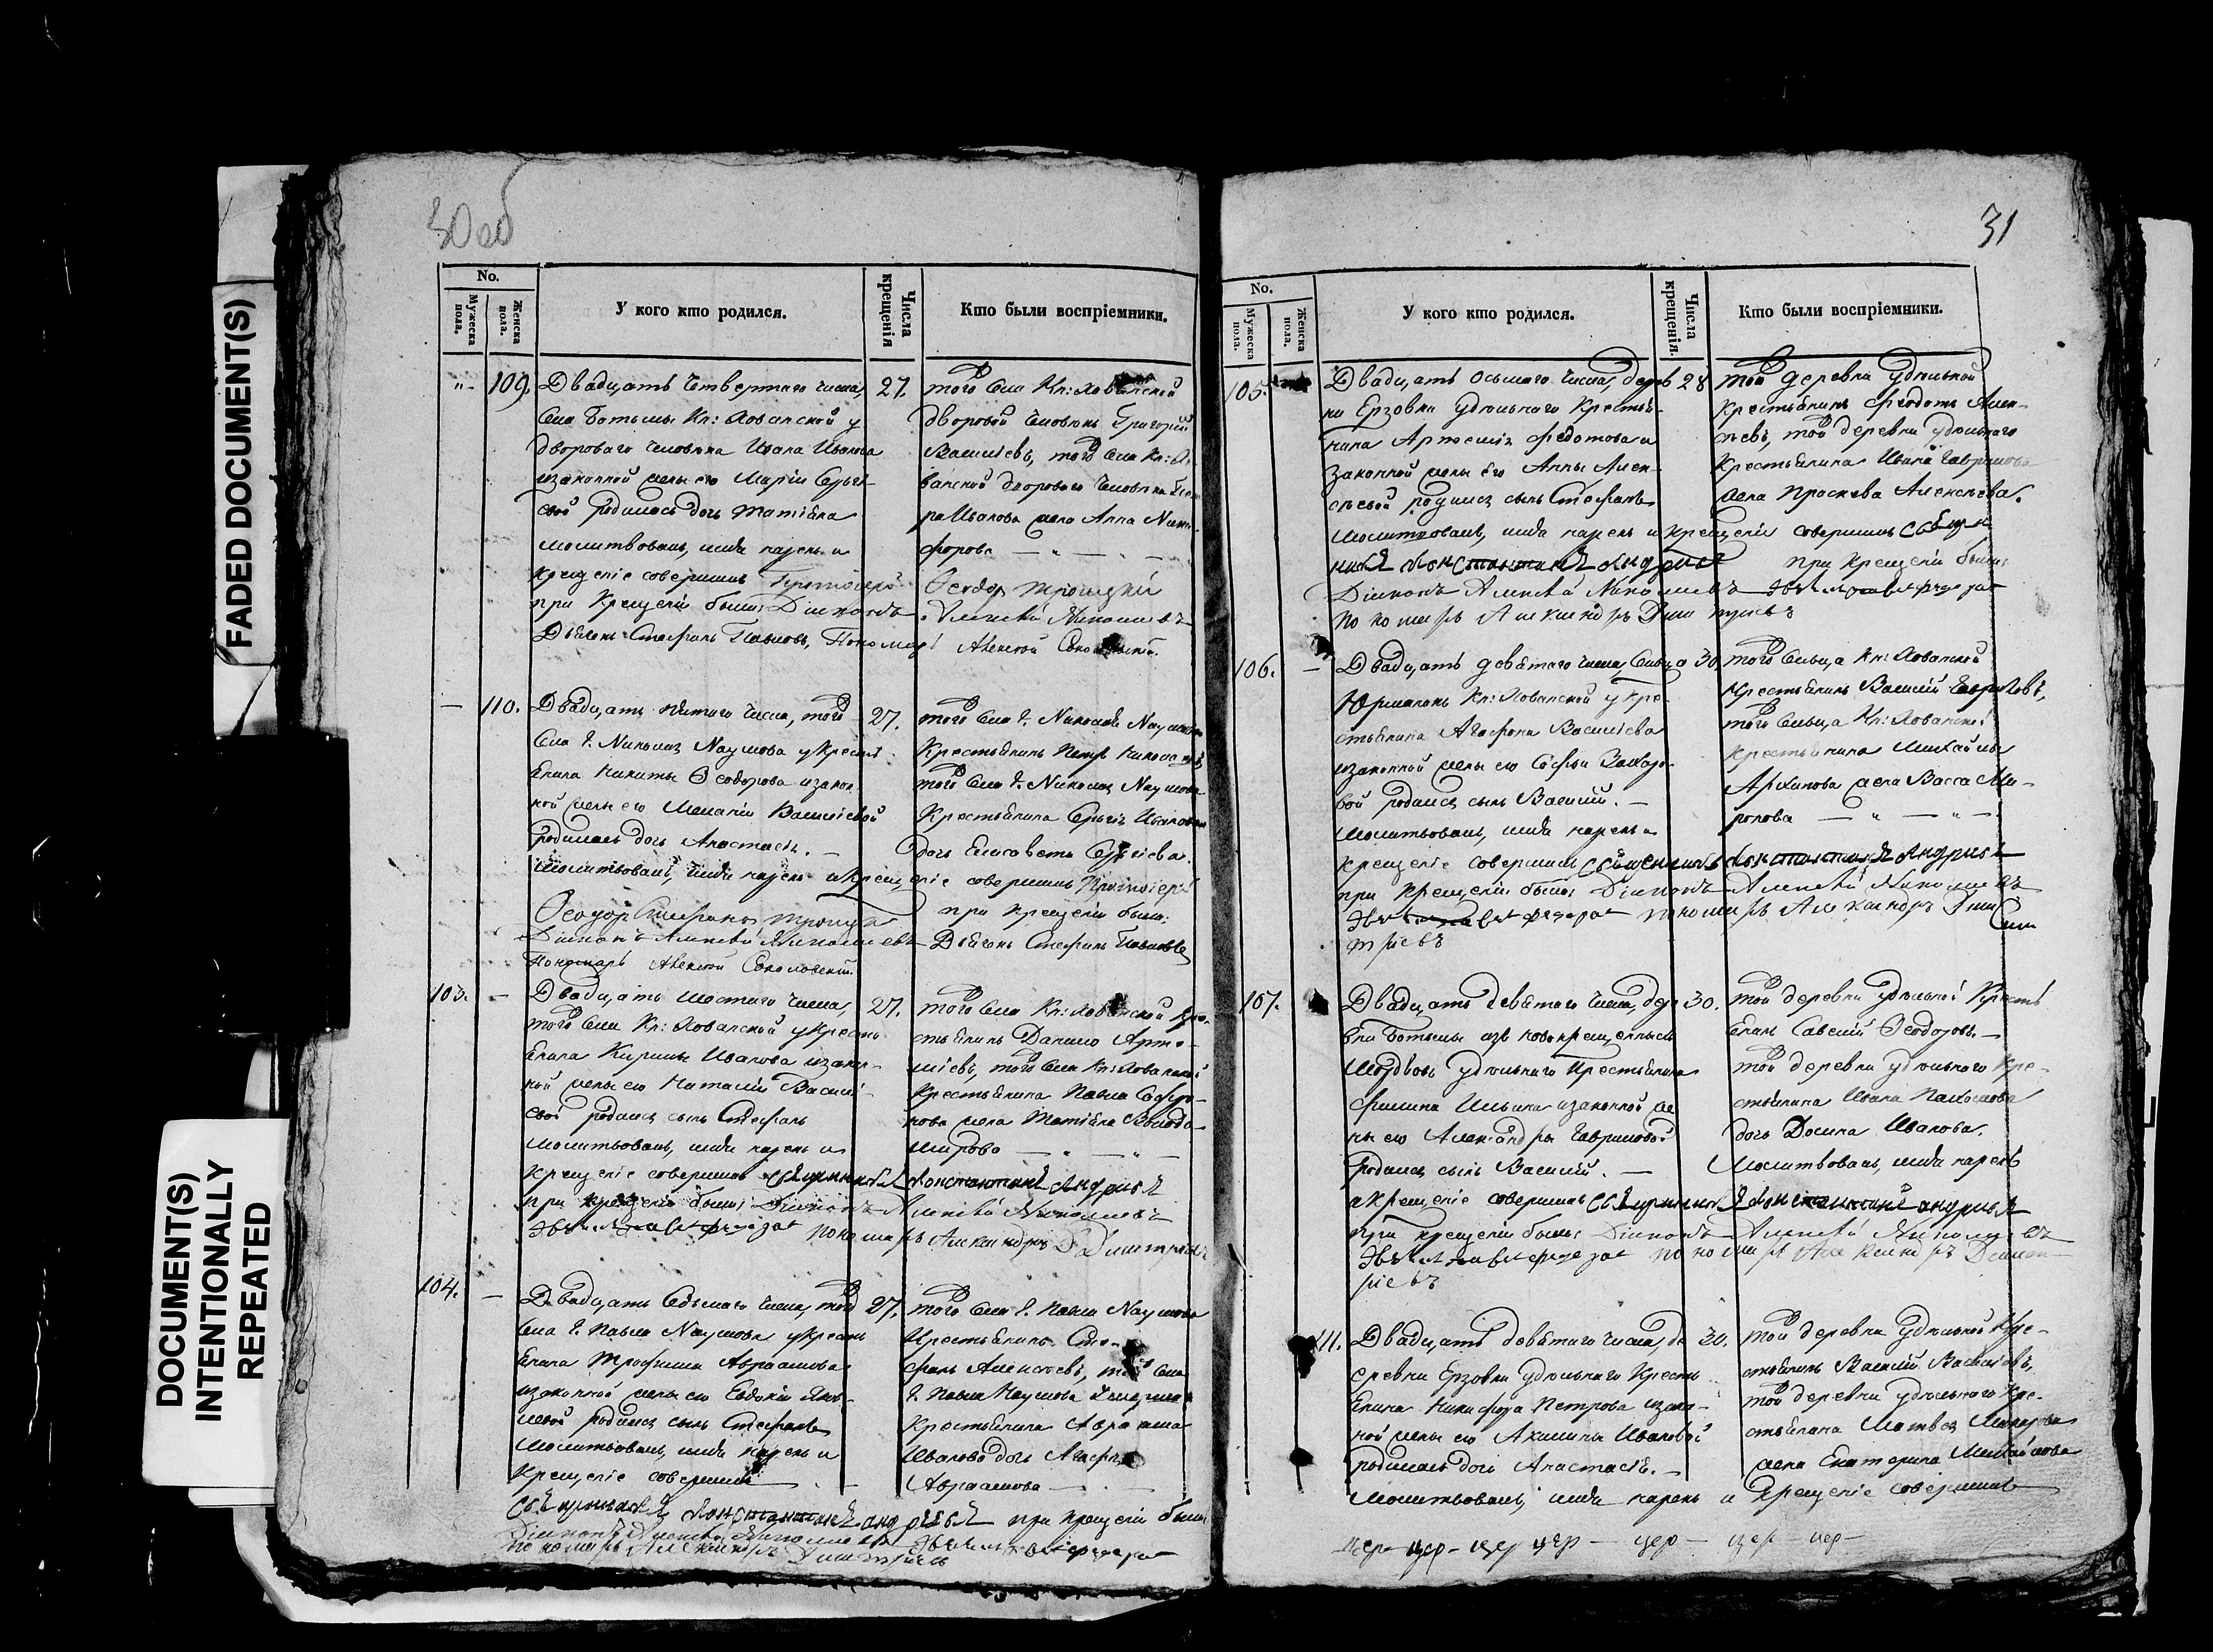 FADED DOCUMENT(S)
DOCUMENT(S)
INTENTIONALLY
REPEATED
30 об
No.
Мужеска пола.
Женска пола.
У кого кто родился.
Числа крещенія
Кто были воспріемники.
"- 109. Двадцать четвертаго числа, 27.
села Ботьмы Кн: Хованской у
двороваго человека Ивана Иванова
изаконной жены его Маріи Сергѣ-
евой родилась дочь Татіана
молитвовалъ, имя нарекъ и
крещеніе совершилъ Протоіерей
при крещеніи были: Діаконъ
Дьяконъ Стефанъ Павловъ, Пономарь
того села Кн: Хованской
дворовой человекъ Григорій
Василіевъ, того села Кн: Хо-
ванской двороваго человека
ра Иванова жена Анна Ники-
форова
Ѳеодор Троицкій
Алексѣй Николаевъ
Алексѣй Соколовскій.
— 110. Двадцать пятаго числа, того 27.
села г. Николая Наумова у крестья-
нина Никиты Ѳеодорова изакон-
ной жены его Меланіи Василіевой
родилась дочь Анастасія.
молитвовалъ, имя нарекъ и крещеніе совершилъ Протоіерей
Ѳеодор Стефанов Троицкій при крещеніи были:
Діаконъ Алексѣй Николаевъ Дьяконъ Стефанъ Павловъ
Пономарь Алексѣй Соколовскій.
того села г. Николая Наумова
крестьянинъ Петръ
того села г. Николая Наумова
крестьянина Сергія Иванова
дочь Елисавета Сергіева.
103. — Двадцать шестаго числа, 27.
того села Кн: Хованской у крестья-
нина Кирилы Иванова изакон-
ной жены его Наталіи Василі-
евой родился сынъ Стефанъ
молитвовалъ, имя нарекъ и
крещеніе совершилъ священникъ Константинъ Андреевъ
при крещеніи были: Діаконъ Алексѣй Николаевъ
пономарь Александръ Димитріевъ
того села Кн: Хованской кре-
стьянинъ Данило Арте-
міевъ, того села Кн: Хованской
крестьянина Павла Софро-
нова жена Татіана Володи-
мирова
104. — Двадцать седьмаго числа, того 27.
села г. Павла Наумова у крестья-
нина Трофима Авраамова
изаконной жены его Евдокіи Яков-
левой родился сынъ Стефанъ
молитвовалъ, имя нарекъ и
крещеніе совершилъ
священникъ Константинъ Андреевъ при крещеніи были
Діаконъ Алексѣй Николаевъ
пономарь Александръ Димитріевъ
того села г. Павла Наумова
крестьянинъ Сте-
фанъ Алексѣевъ, того села
г. Павла Наумова
крестьянина Авраама
Иванова дочь Агафья
Авраамова
31
No.
Мужеска пола.
Женска пола.
У кого кто родился.
Числа крещенія.
Кто были воспріемники.
105. Двадцать осьмаго числа, дерев 28
ни Ерзовки удѣльнаго крестья-
нина Артемія Федотова и
законной жены его Анны Алек-
сѣевой родился сынъ Стефанъ
молитвовалъ, имя нарекъ и крещеніе совершилъ священ-
никъ Константинъ Андреевъ при крещеніи были:
Діаконъ Алексѣй Николаевъ
пономарь Александръ Димитріевъ
той деревни удѣльной
крестьянинъ Федотъ Алек-
сѣевъ, той деревни удѣльнаго
крестьянина Ивана Гаврилова
жена Прасковья Алексѣева.
106. — Двадцать девятаго числа, сельца 30.
Юрманокъ Кн: Хованской у кре-
стьянина Агафона Василіева
изаконной жены его Софьи Захаро-
вой родился сынъ Василій. —
молитвовалъ, имя нарекъ и
крещеніе совершилъ священникъ Константинъ Андреевъ
при крещеніи были: Діаконъ Алексѣй Николаевъ
пономарь Александръ Дими
тріевъ
того сельца Кн: Хованской
крестьянинъ Василій
того сельца Кн: Хованской
крестьянина Михайлы
Архипова жена Васса Ми-
ронова
107. Двадцать девятаго числа, дере 30.
вни Ботьмы изъ новокрещенныхъ
мордвовъ удѣльнаго крестьянина
Филипа Ильина изаконной же
ны его Александры Гавриловой
родился сынъ Василій. —
Молитвовалъ, имя нарекъ
и крещеніе совершилъ священникъ Константинъ Андреевъ
при крещеніи были: Діаконъ Алексѣй Николаевъ
пономарь Александръ Димит-
ріевъ
той деревни удѣльной кресть
янинъ Савелій Ѳеодоровъ. —
той деревни удѣльнаго кре-
стьянина Ивана Пахомова
дочь Домна Иванова.
111. Двадцать девятаго числа, де 30.
ревни Ерзовки удѣльнаго кресть
янина Никифора Петрова изакон-
ной жены его Акилины Ивановой
родилась дочь Анастасія. —
Молитвовалъ, имя нарекъ и крещеніе совершилъ
той деревни удѣльной кре-
стьянинъ Василій Василіевъ,
той деревни удѣльнаго кре-
стьянина Матвея Макарова
жена Екатерина Михайлова